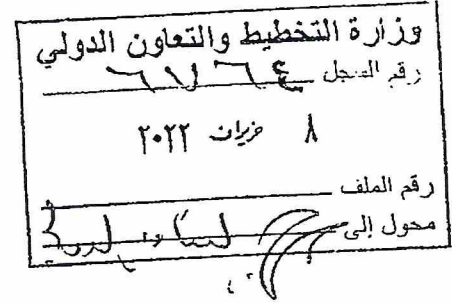 وزارة التخطيط والتعاون الدولي
رقم السجل ٦٧٦٤
٨ حزيران ٢٠٢٢
رقم الملف
محول إلى